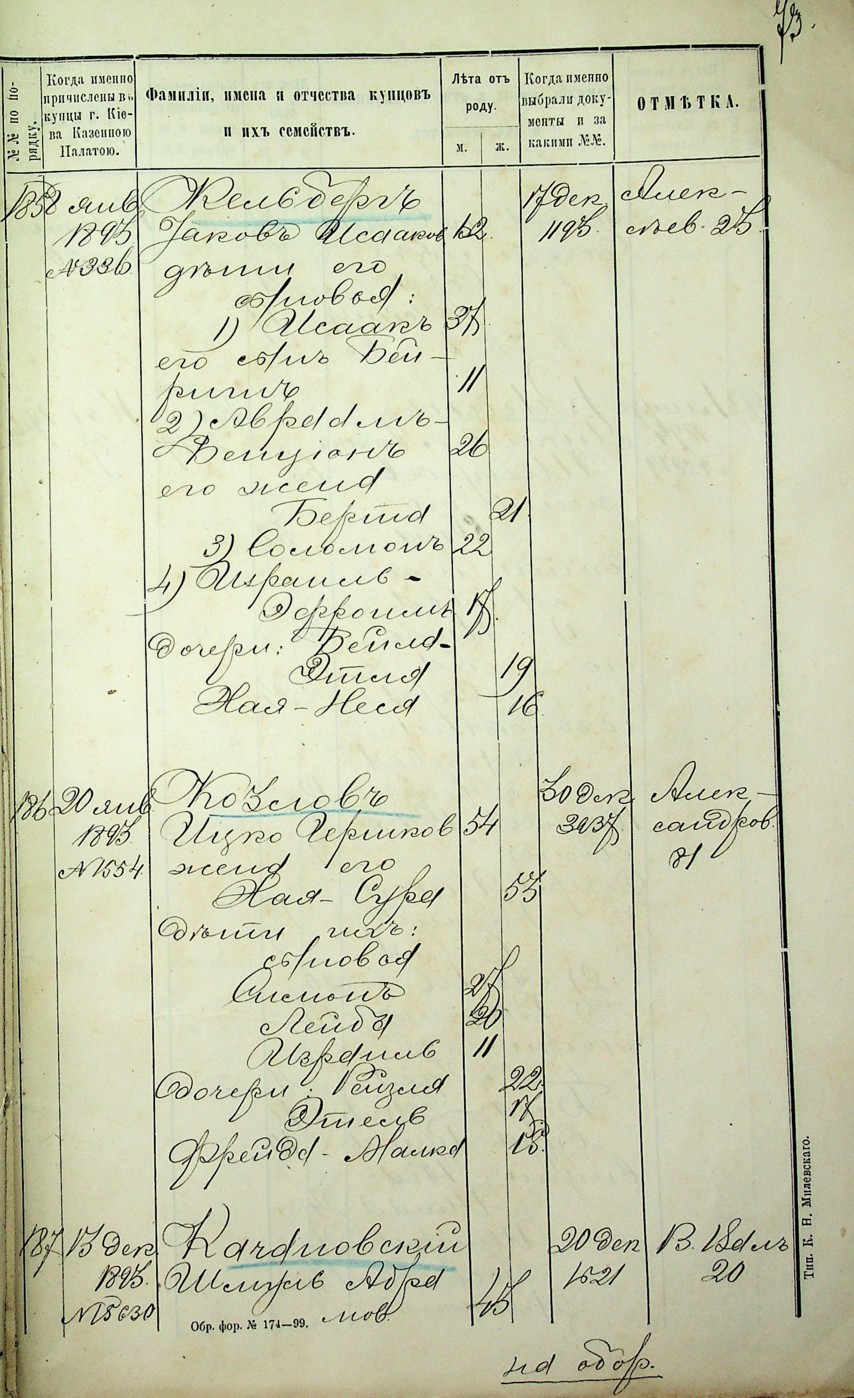 73.
№№ по порядку.
Когда именно причислены въ купцы г. Кіева Казенною Палатою.
Фамиліи, имена и отчества купцовъ и ихъ семействъ.
Лѣта отъ роду.
м.
ж.
Когда именно выбрали документы и за какими №№.
ОТМѢТКА.
185 8 янв Кельбергъ 17 дек Алек-
1893 Јаковъ Исааков 62 1193 сѣев. 23
№336 дѣти его
сыновья:
1) Исаакъ 37
его сынъ Бей-
ришъ 11
2) Авраамъ-
Бенціонъ 26
его жена
Берта 21
3) Соломонъ 22
4) Израиль-
Эфроимъ 17
дочери: Бейла-
Этля 19
Хая-Неся 16
186 20 янв Козловъ 30 дек Алек-
1893 Ицко Гершков 54 3437 сандров.
№1554 жена его 81
Хая-Сура 53
Дѣти ихъ:
сыновья
Симонъ 27
Лейба 20
Израиль 11
Дочери: Рейзля 22
Этель 17
Фрейда-Малка 15
187 13 дек Качановскій 20 дек В. Вал
1893 Шмуль Абра 43 1521 20
№15630 мов
Обр. фор. № 174—99.
на обор.
Тип. К. Н. Милевскаго.